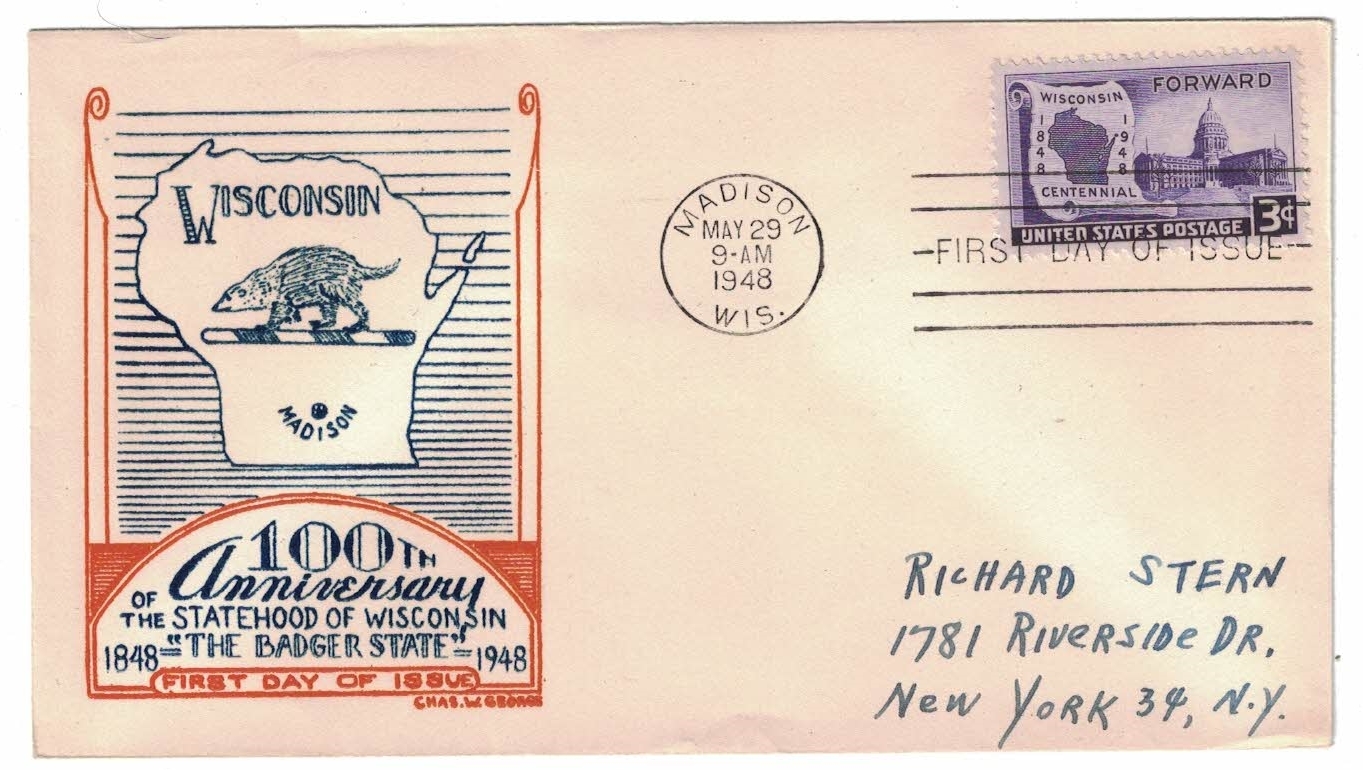 WISCONSIN
MADISON
100TH
Anniversary
OF
THE STATEHOOD OF WISCONSIN
1848 = "THE BADGER STATE" = 1948
FIRST DAY OF ISSUE
CHAS. W. GEORGE
MADISON
MAY 29
9-AM
1948
WIS.
FORWARD
WISCONSIN
1848 1948
CENTENNIAL
UNITED STATES POSTAGE 3¢
FIRST DAY OF ISSUE
RICHARD STERN
1781 RIVERSIDE DR.
NEW YORK 34, N.Y.